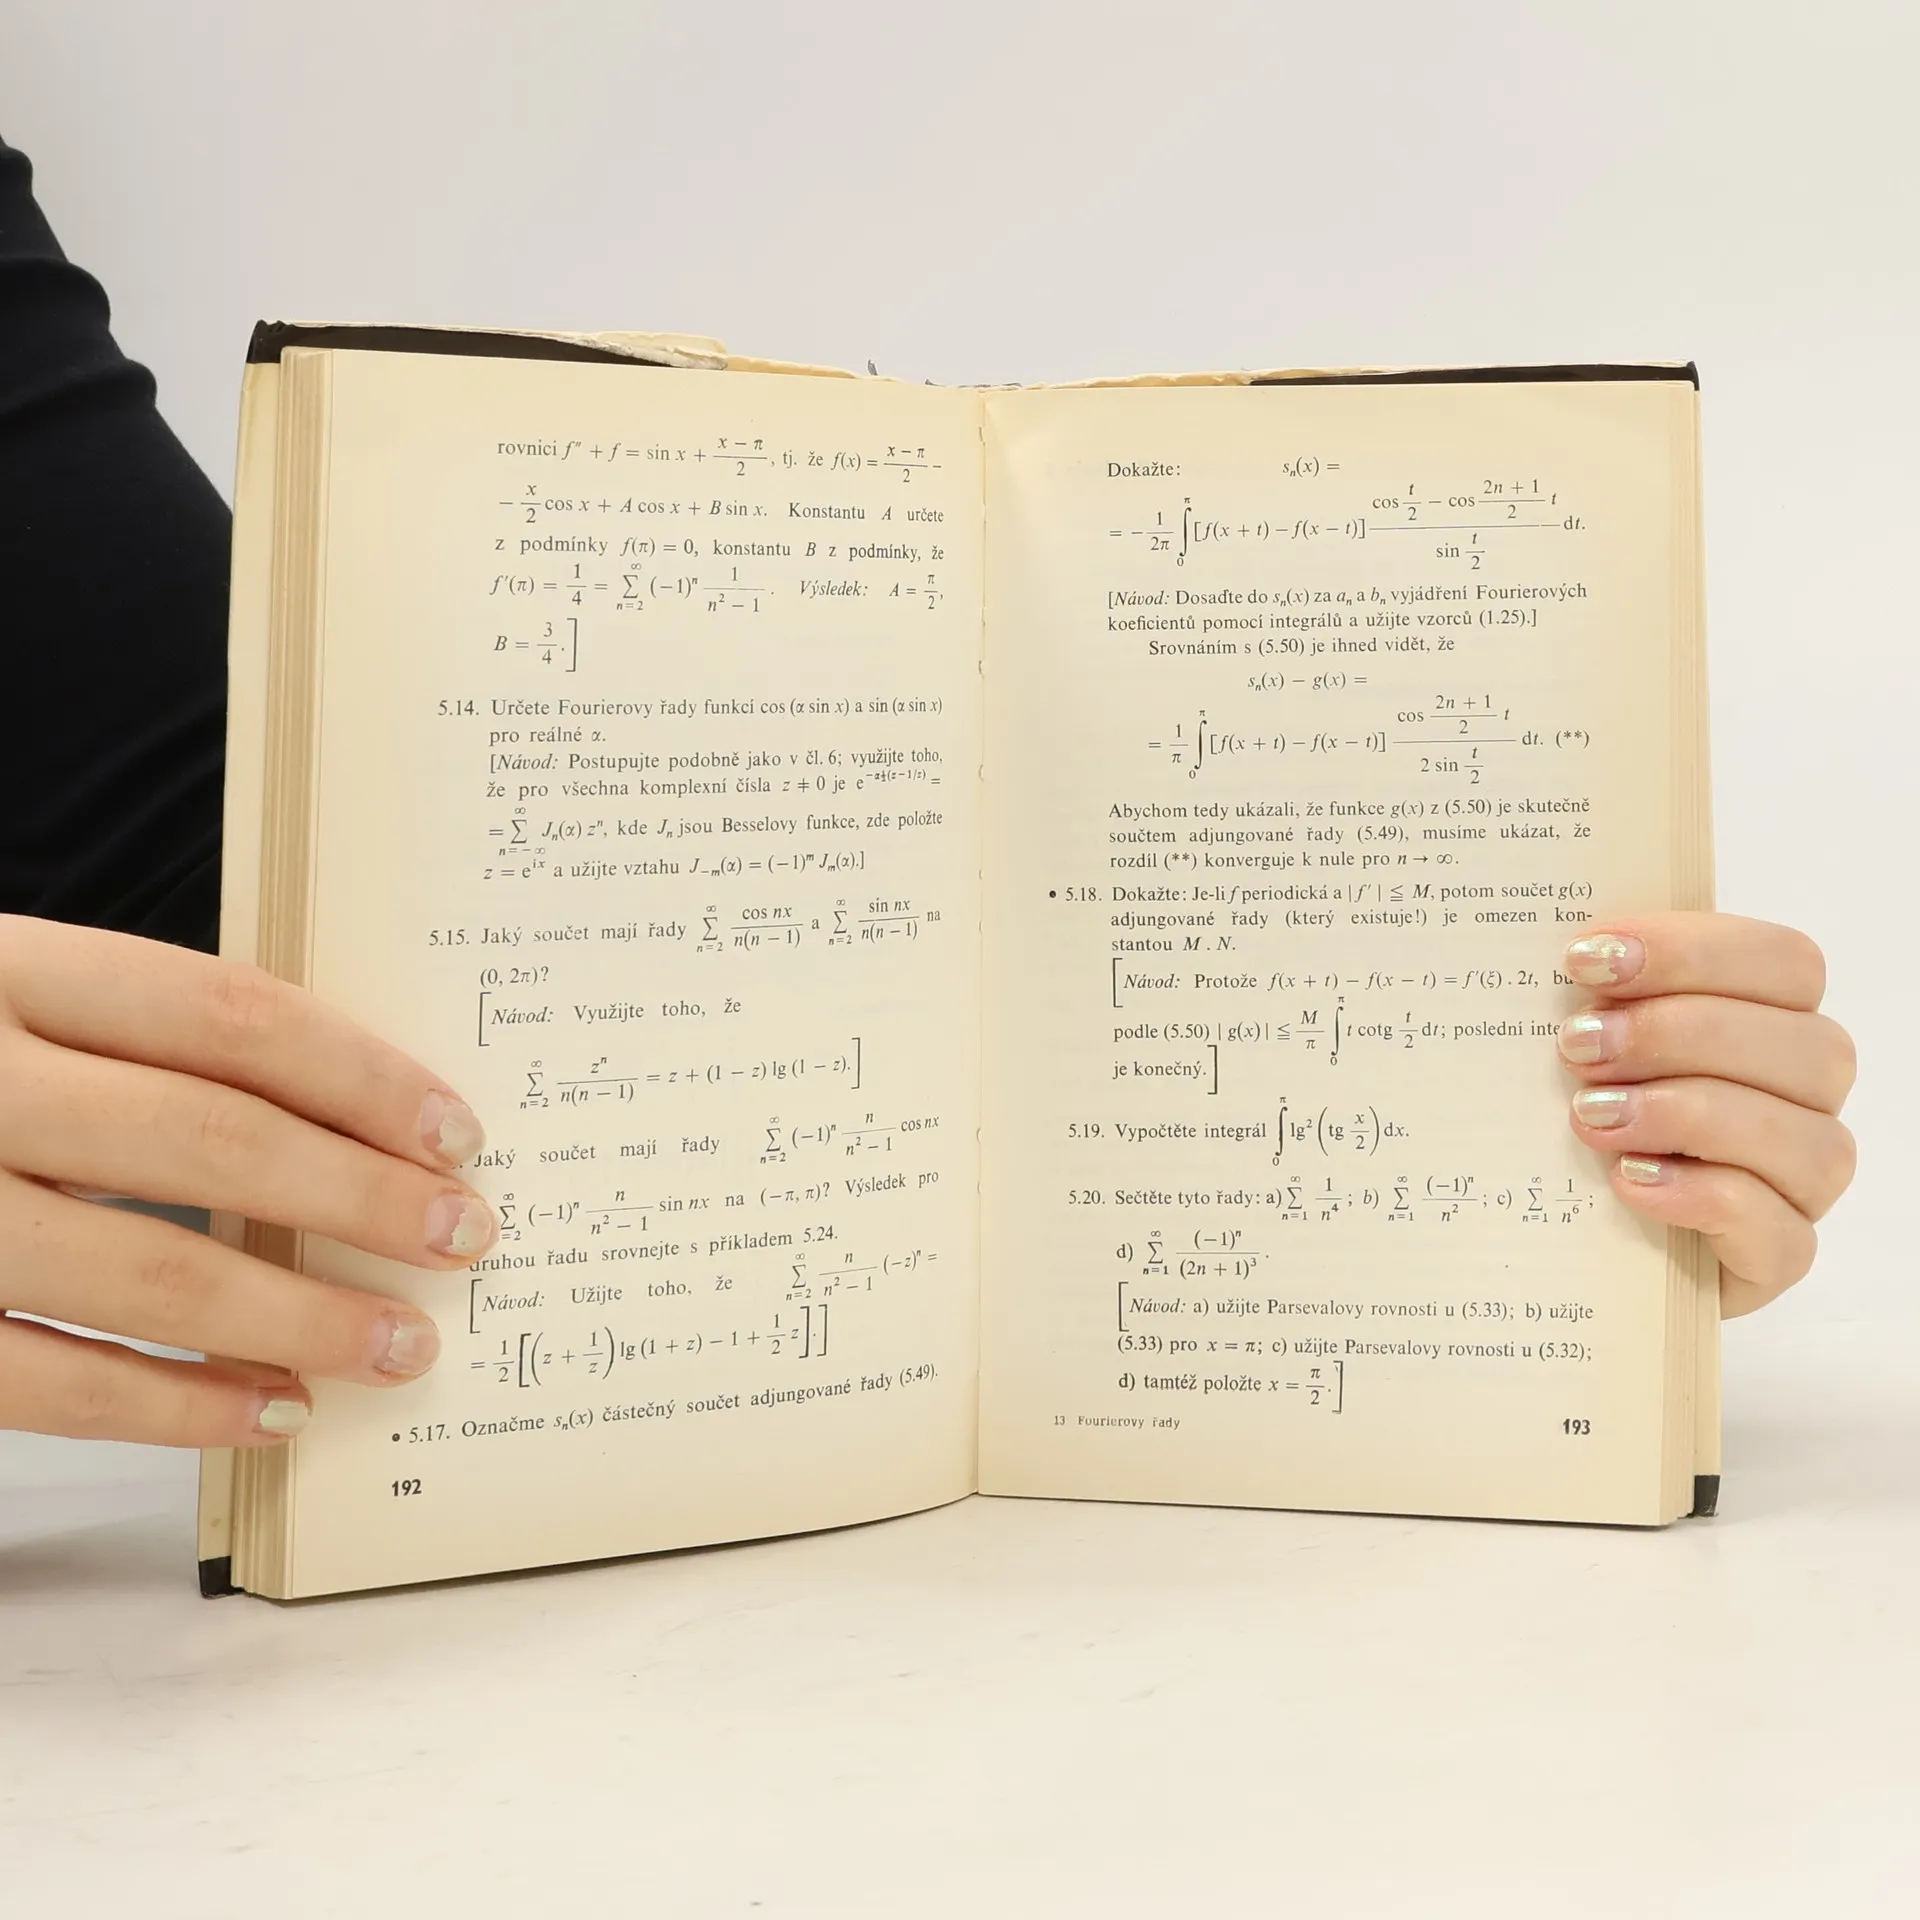 rovnici f″ + f = sin x + (x − π)/2, tj. že f(x) = (x − π)/2 −
− x/2 cos x + A cos x + B sin x. Konstantu A určete
z podmínky f(π) = 0, konstantu B z podmínky, že
f′(π) = 1/4 = ∑_{n=2}^{∞} (−1)ⁿ 1/(n² − 1). Výsledek: A = π/2,
B = 3/4.]
5.14. Určete Fourierovy řady funkcí cos (α sin x) a sin (α sin x)
pro reálné α.
[Návod: Postupujte podobně jako v čl. 6; využijte toho,
že pro všechna komplexní čísla z ≠ 0 je e^{−α½(z−1/z)} =
= ∑_{n=−∞}^{∞} Jₙ(α) zⁿ, kde Jₙ jsou Besselovy funkce, zde položte
z = e^{ix} a užijte vztahu J₋ₘ(α) = (−1)ᵐ Jₘ(α).]
5.15. Jaký součet mají řady ∑_{n=2}^{∞} cos nx/(n(n − 1)) a ∑_{n=2}^{∞} sin nx/(n(n − 1)) na
(0, 2π)?
[Návod: Využijte toho, že
∑_{n=2}^{∞} zⁿ/(n(n − 1)) = z + (1 − z) lg (1 − z).]
Jaký součet mají řady ∑_{n=2}^{∞} (−1)ⁿ n/(n² − 1) cos nx
∑_{=2}^{∞} (−1)ⁿ n/(n² − 1) sin nx na (−π, π)? Výsledek pro
druhou řadu srovnejte s příkladem 5.24.
[Návod: Užijte toho, že ∑_{n=2}^{∞} n/(n² − 1) (−z)ⁿ =
= 1/2 [(z + 1/z) lg (1 + z) − 1 + 1/2 z].]
• 5.17. Označme sₙ(x) částečný součet adjungované řady (5.49).
192
Dokažte: sₙ(x) =
= − 1/2π ∫₀^π [f(x + t) − f(x − t)] (cos t/2 − cos (2n + 1)/2 t)/(sin t/2) dt.
[Návod: Dosaďte do sₙ(x) za aₙ a bₙ vyjádření Fourierových
koeficientů pomocí integrálů a užijte vzorců (1.25).]
Srovnáním s (5.50) je ihned vidět, že
sₙ(x) − g(x) =
= 1/π ∫₀^π [f(x + t) − f(x − t)] (cos (2n + 1)/2 t)/(2 sin t/2) dt. (**)
Abychom tedy ukázali, že funkce g(x) z (5.50) je skutečně
součtem adjungované řady (5.49), musíme ukázat, že
rozdíl (**) konverguje k nule pro n → ∞.
• 5.18. Dokažte: Je-li f periodická a |f′| ≦ M, potom součet g(x)
adjungované řady (který existuje!) je omezen kon-
stantou M . N.
[Návod: Protože f(x + t) − f(x − t) = f′(ξ) . 2t,
podle (5.50) |g(x)| ≦ M/π ∫₀^π t cotg t/2 dt; poslední
je konečný.]
5.19. Vypočtěte integrál ∫₀^π lg² (tg x/2) dx.
5.20. Sečtěte tyto řady: a) ∑_{n=1}^{∞} 1/n⁴; b) ∑_{n=1}^{∞} (−1)ⁿ/n²; c) ∑_{n=1}^{∞} 1/n⁶;
d) ∑_{n=1}^{∞} (−1)ⁿ/(2n + 1)³.
[Návod: a) užijte Parsevalovy rovnosti u (5.33); b) užijte
(5.33) pro x = π; c) užijte Parsevalovy rovnosti u (5.32);
d) tamtéž položte x = π/2.]
13 Fourierovy řady
193